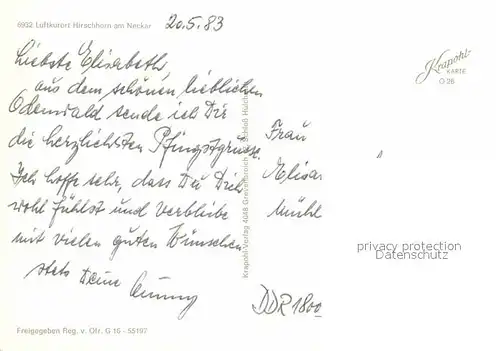 6932 Luftkurort Hirschhorn am Neckar
20.5.83
Liebste Elisabeth,
aus dem schönen, lieblichen
Odenwald sende ich Dir
die herzlichsten Pfingstgrüsse.
Ich hoffe sehr, dass Du Dich
wohl fühlst und verbleibe
mit vielen guten Wünschen
stets Deine
Krapohl-Verlag 4048 Grevenbroich Schloß Hülchr
Krapohl-
KARTE
O 26
Frau
Elisa
Mühl
DDR 1800
privacy protection
Datenschutz
Freigegeben Reg. v. Ofr. G 16 - 55197